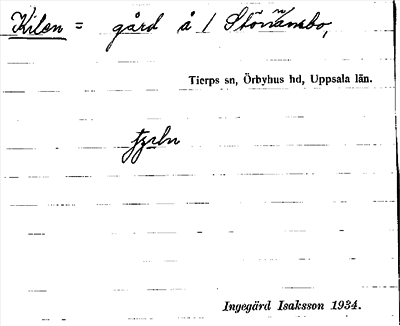 Kilen = gård å 1
Tierps sn, Örbyhus hd, Uppsala län.
Ingegärd Isaksson 1934.